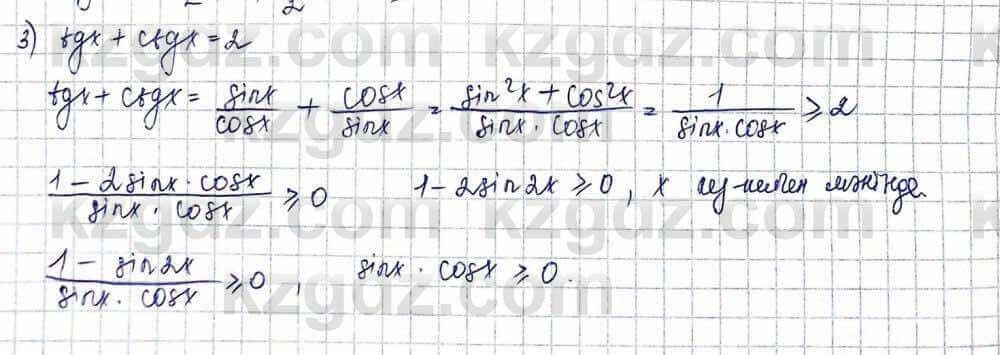 3) tgx + ctgx = 2
tgx + ctgx = sinx/cosx + cosx/sinx = (sin²x + cos²x)/(sinx · cosx) = 1/(sinx · cosx) ⩾ 2
(1 - 2sinx · cosx)/(sinx · cosx) ⩾ 0    1 - 2sin2x ⩾ 0, x мәнінде.
(1 - sin2x)/(sinx · cosx) ⩾ 0,    sinx · cosx ⩾ 0.
kzgdz.com